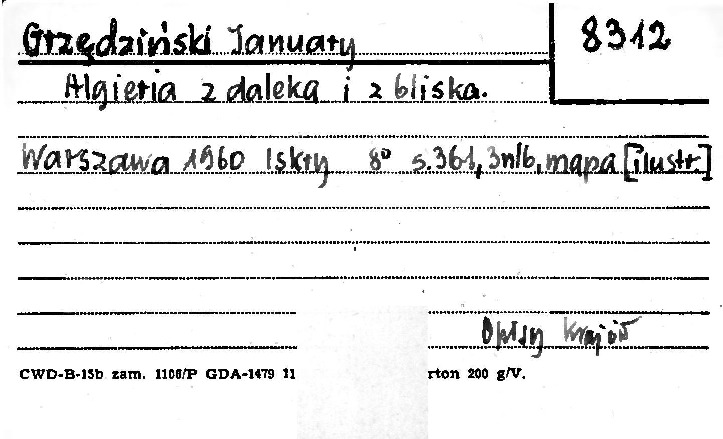 Grzędziński January
8312
Algieria z daleka i z bliska.
Warszawa 1960 Iskry 8° s.361, 3nlb, mapa [ilustr.]
Opisy Krajów
CWD-B-15b zam. 1106/P GDA-1479 11 rton 200 g/V.